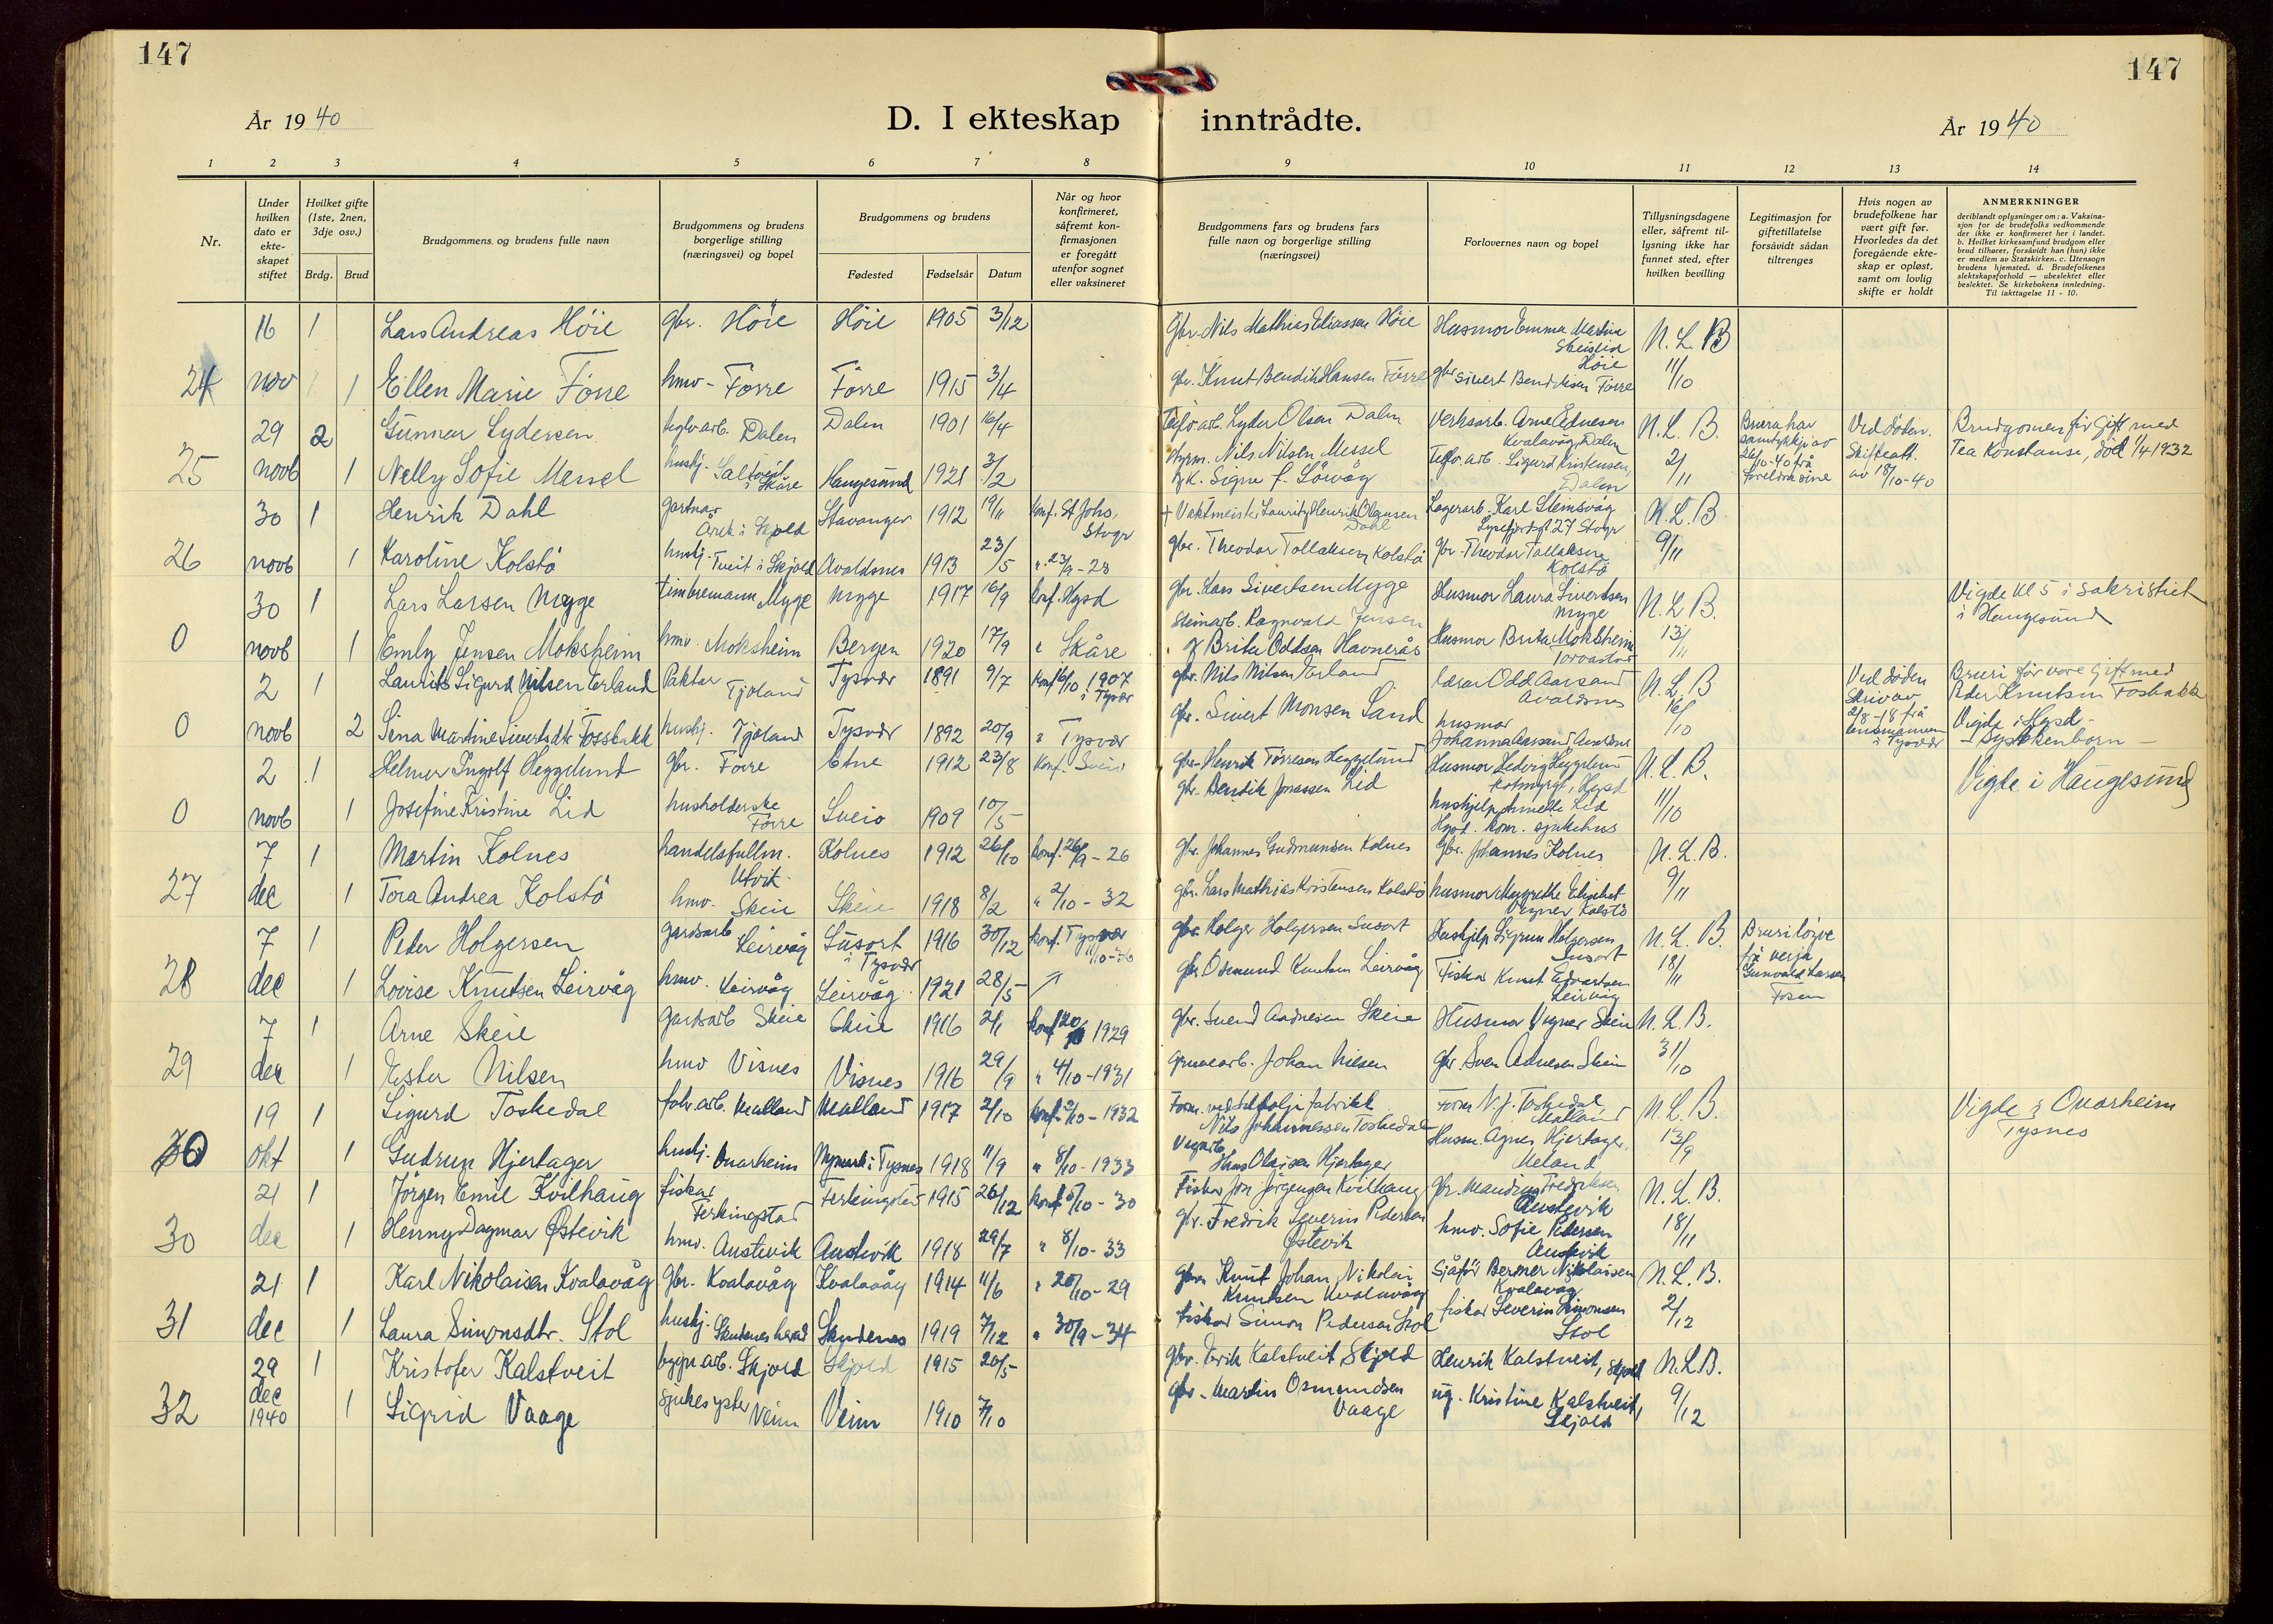 147
147
År 1940
D. I ekteskap inntrådte.
År 1940
1 2 3 4 5 6 7 8 9 10 11 12 13 14
Nr.
Under hvilken dato er ekte-skapet stiftet
Hvilket gifte (1ste, 2nen, 3dje osv.)
Brdg. Brud
Brudgommens og brudens fulle navn
Brudgommens og brudens borgerlige stilling (næringsvei) og bopel
Brudgommens og brudens
Fødested Fødselsår Datum
Når og hvor konfirmeret, såfremt kon-firmasjonen er foregått utenfor sognet eller vaksineret
Brudgommens fars og brudens fars fulle navn og borgerlige stilling (næringsvei)
Forlovernes navn og bopel
Tillysningsdagene eller, såfremt til-lysning ikke har funnet sted, efter hvilken bevilling
Legitimasjon for giftetillatelse forsåvidt sådan tiltrenges
Hvis nogen av brudefolkene har vært gift før. Hvorledes da det foregående ekte-skap er opløst, samt om lovlig skifte er holdt
ANMERKNINGER
deriblandt oplysninger om: a. Vaksina-sjon for de brudefolks vedkommende der ikke er konfirmeret her i landet. b. Hvilket kirkesamfund brudgom eller brud tilhører, forsåvidt han (hun) ikke er medlem av Statskirken. c. Utensogn brudens hjemsted. d. Brudefolkenes slektskapsforhold — ubeslektet eller beslektet. Se kirkebokens innledning. Til iakttagelse 11 - 10.
16 1 Lars Andreas Höie gbr. Höie Höie 1905 3/12 Gbr. Nils Mathias Eliassen Höie Husmor Emma Martine Skeiseid Höie N. L. B
24 nov 1 Ellen Marie Förre hmv - Förre Förre 1915 3/4 gbr. Knut Bendik Hansen Förre gbr Sivert Bendiksen Förre 11/10
29 2 Gunnar Lydersen teglv. arb. Dalen Dalen 1901 16/4 Teglv. arb. Lyder Olsen Dalen Verksarb. Arne Ednesen Kvalavåg, Dalen N. L. B. Brura har samtykkje av 26/10-40 frå foreldra sine Ved döden. Skifteatt. av 18/10-40 Brudgomen för gift med Tea Konstanse, död 1/4 1932
25 novb 1 Nelly Sofie Messel hushj. Saltveit i Skåre Haugesund 1921 3/2 Styrm. Nils Nilsen Messel g. k. Signe f. Lövåg Teglv. arb. Sigurd Kristensen, Dalen 2/11
30 1 Henrik Dahl gartnar Arek i Skjold Stavanger 1912 19/11 Konf. St Johs. Stvgr + Vaktmeister Lauritz Henrik Olausen Dahl Lagerarb. Karl Steinsvåg Lysefjordgt 27 Stvgr N. L. B
26 novb 1 Karoline Kolstö hushj. Tveit i Skjold Avaldsnes 1913 23/5 " 23/9 - 28 gbr. Theodor Tollaksen Kolstö Gbr. Theodor Tollaksen Kolstö 9/11
30 1 Lars Larsen Mygge timbremann Mygge Mygge 1917 16/9 Konf. Hgsd gbr. Lars Sivertsen Mygge Husmor Laura Sivertsen Mygge N. L. B. Vigde kl 5 i sakristiet i Haugesund
0 novb 1 Emly Jensen Moksheim hmv. Moksheim Bergen 1920 17/9 " Skåre Steinarb. Ragnvald Jensen g Brita Oddsen Havnerås Husmor Brita Moksheim Torvastad 13/11
2 1 Laurits Sigurd Nilsen Erland Paktar Tjöland Tysvær 1891 9/7 Konf 6/10 1907 i Tysvær gbr. Nils Nilsen Erland lærar Odd Aarsand Avaldsnes N. L. B Ved döden Skriv av 2/8-18 frå lensmannen i Tysvær Bruri för vore gift med Peder Knutsen Fosbakk
0 novb 2 Sina Martine Sivertsdtr Fossbakk hushj. Tjöland Tysvær 1892 20/9 " Tysvær gbr. Sivert Monsen Sand husmor Johanna Aarsand 16/10 Vigde i Hgsd - - Syskenborn -
2 1 Helmer Ingolf Heggelund Gbr. Förre Etne 1912 23/8 Konf. Sveio gbr. Henrik Törresen Heggelund Husmor Hedvig Heggelund Rotmyrgt, Hgsd N. L. B. Vigde i Haugesund
0 novb 1 Josefine Kristine Lid husholderske Förre Sveio 1909 10/5 gbr. Bendik Jonassen Lid hushjelp Annette Lid Hgsd. kom. sjukehus 11/10
7 1 Martin Kolnes handelsfullm. Utvik Kolnes 1912 26/10 Konf. 26/9 - 26 gbr. Johannes Gudmundsen Kolnes Gbr. Johannes Kolnes N. L. B.
27 dec 1 Tora Andrea Kolstö hmv. Skeie Skeie 1918 8/2 " 2/10 - 32 gbr. Lars Mathias Kristensen Kolstö husmor Meggrethe Elisabet Vegner Kolstö 9/11
7 1 Peder Holgersen gardsarb Leirvåg Susort i Tysvær 1916 30/12 Konf. Tysvær 11/10-36 gbr. Holger Holgersen Susort Hushjelp Sigrun Holgersen Susort N. L. B. Bruri löyve frå verja Gunvald Larsen Fosen
28 dec 1 Lovise Knutsen Leirvåg hmv. Leirvåg Leirvåg 1921 28/5 gbr. Osmund Knutsen Leirvåg Fiskar Knut Edvartsen Leirvåg 18/11
7 1 Arne Skeie gardsarb Skeie Skeie 1916 2/1 Konf 20/10 1929 gbr. Svend Aadnesen Skeie Husmor Vegner Skeie N. L. B.
29 dec 1 Ester Nilsen hmv Visnes Visnes 1916 29/9 " 4/10-1931 gruvearb. Johan Nilsen gbr. Sven Adnesen Skeie 31/10
19 1 Sigurd Toskedal fabr. arb. Malland Malland 1917 2/10 Konf. 2/10 - 1932 Form. ved sildolje fabrikk Nils Johannessen Toskedal Form N. J. Toskedal Malland N. L. B. Vigde i Onarheim Tysnes
30 okt 1 Gudrun Hjertager hushj. Onarheim Nymark i Tysnes 1918 11/9 " 8/10-1933 Vegarb. Hans Olaisen Hjertager Husm. Agnes Hjertager, Meland 13/9
21 1 Jörgen Emil Kvilhaug fiskar Ferkingstad Ferkingstad 1915 26/12 Konf 5/10 - 30 Fiskar Jon Jörgensen Kvilhaug gbr. Maudius Fredriksen Austevik N. L. B.
30 dec 1 Henny Dagmar Østevik hmv. Austevik Austevik 1918 29/7 " 8/10-33 gbr. Fredrik Severin Pedersen Østevik hmv. Sofie Pedersen Austevik 18/11
21 1 Karl Nikolaisen Kvalavåg Gbr. Kvalavåg Kvalavåg 1914 11/6 " 20/10-29 gbr. Knut Johan Nikolai Knutsen Kvalavåg Sjåför Berner Nikolaisen Kvalavåg N. L. B.
31 dec 1 Laura Simonsdtr. Stol hushj. Skudenes herad Skudenes 1919 7/12 " 30/9-34 fiskar Simon Pedersen Stol fiskar Severin Simonsen Stol 2/12
29 1 Kristofer Kalstveit bygn. arb. Skjold Skjold 1915 20/5 gbr. Erik Kalstveit Skjold Henrik Kalstveit, Skjold N. L. B.
32 dec 1940 1 Sigrid Vaage sjukesyster Veim Veim 1910 7/10 gbr. Martin Osmundsen Vaage ug. Kristine Kalstveit, Skjold 9/12